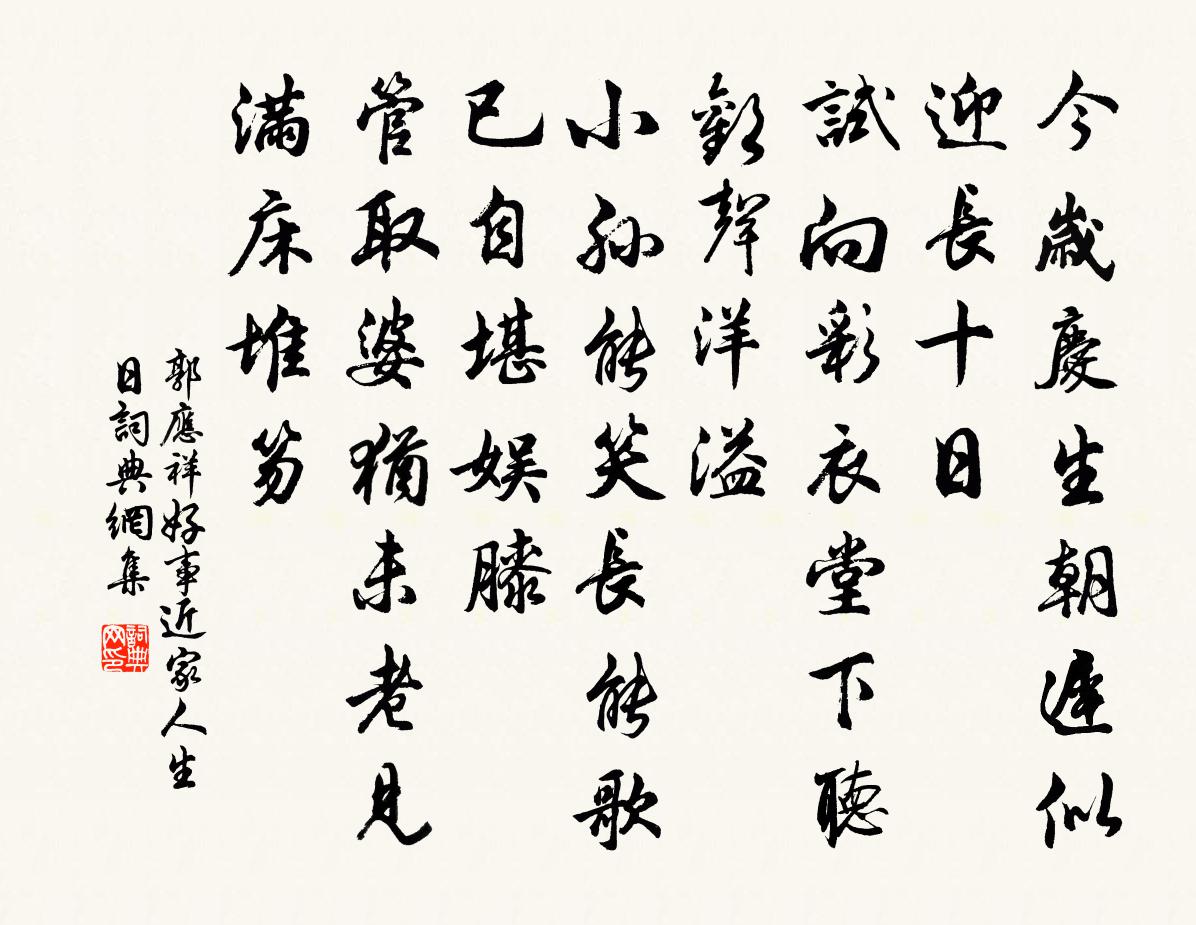 今歲慶生朝遲似
迎長十日
試向彩衣堂下聽
歡聲洋溢
小孫能笑長能歌
已自堪娛膝
管取婆猶未老見
滿床堆笏
郭應祥好事近家人生
日詞典網集
詞典
网印